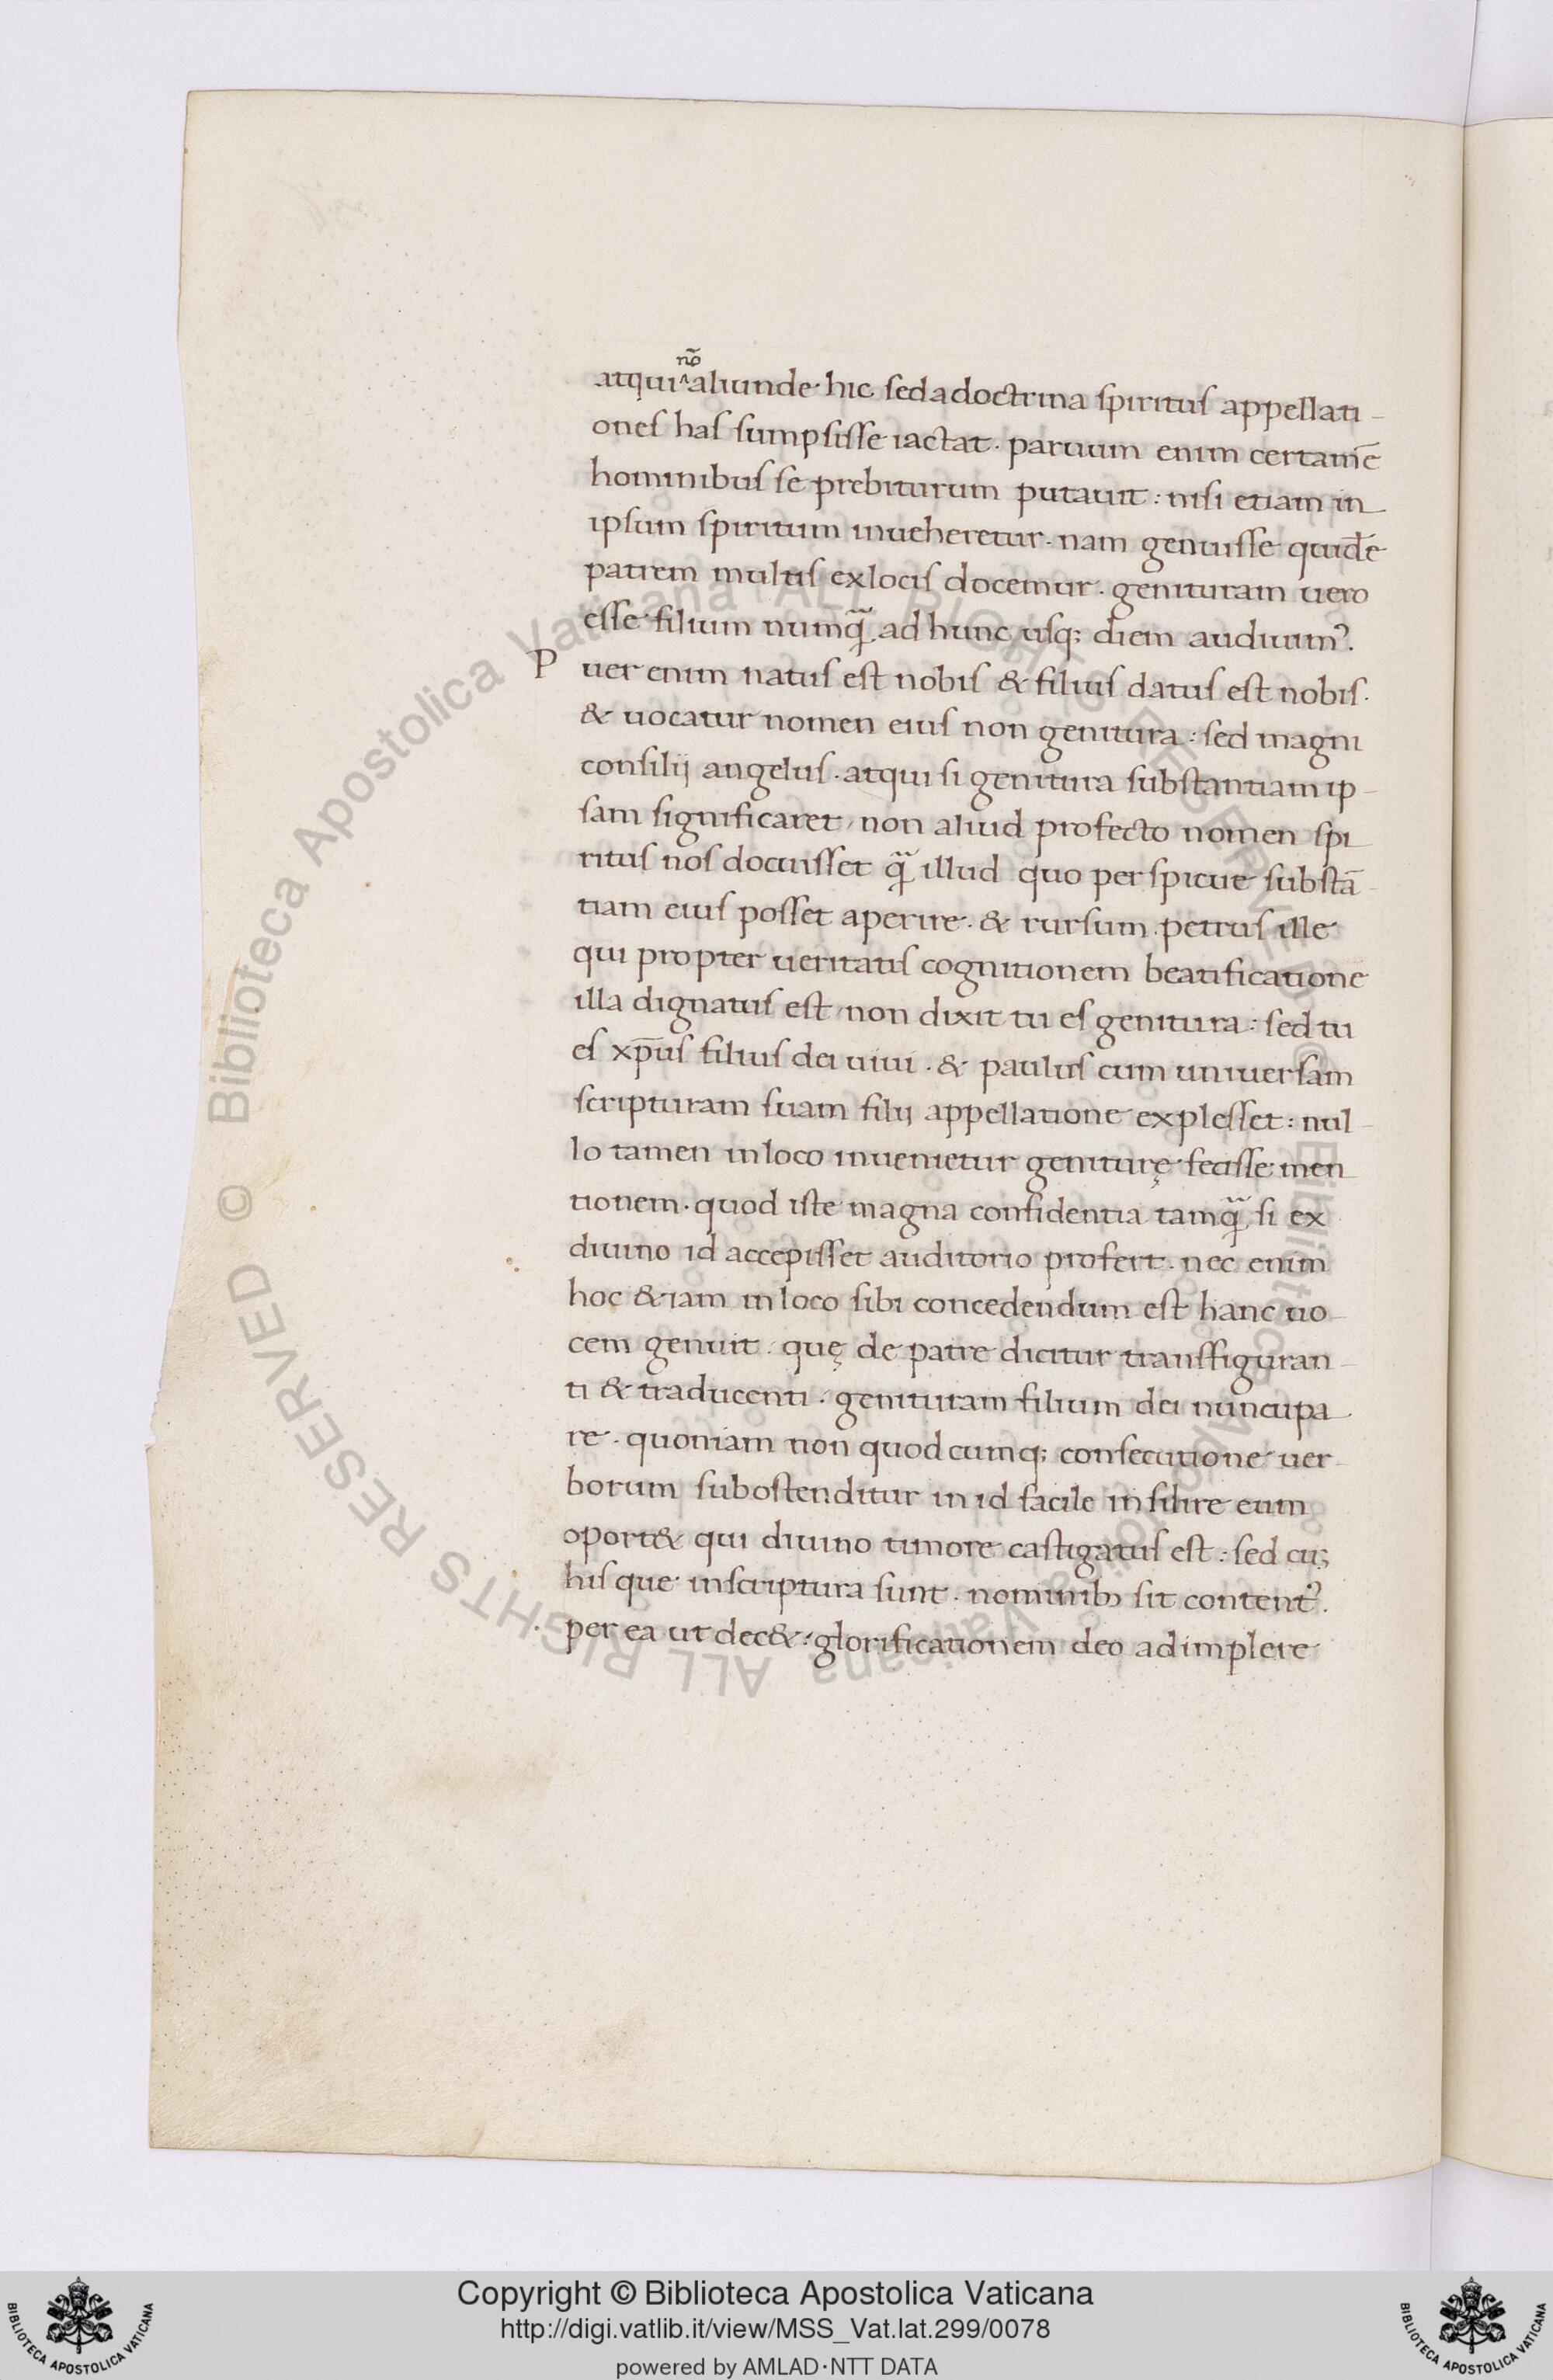 atqui nō aliunde. hic sed a doctrina spiritus appellati-
ones has sumpsisse iactat. paruum enim certamē
hominibus se prebiturum putauit: nisi etiam in
ipsum spiritum inueheretur. nam genuisse quidē
patrem multis ex locis docemur. genituram uero
esse filium numq̃ ad hunc usq; diem audiuim᾽.
Puer enim natus est nobis & filius datus est nobis.
& uocatur nomen eius non genitura: sed magni
consilij angelus. atqui si genitura substantiam ip-
sam significaret, non aliud profecto nomen spi
ritus nos docuisset q̃ illud quo perspicue substā-
tiam eius posset aperire. & rursum. petrus ille
qui propter ueritatis cognitionem beatificatione
illa dignatus est, non dixit tu es genitura: sed tu
es xp̄us filius dei uiui. & paulus cum uniuersam
scripturam suam filij appellatione explesset: nul-
lo tamen in loco inuenietur geniturę fecisse men
tionem. quod iste magna confidentia tamq̃ si ex
diuino id accepisset auditorio profert. nec enim
hoc &iam in loco sibi concedendum est hanc uo-
cem genuit. quę de patre dicitur transfiguran-
ti & traducenti. genituram filium dei nuncupa-
re. quoniam non quodcumq; consecutione uer-
borum subostenditur in id facile insilire eum
oport& qui diuino timore castigatus est: sed cu;
his que in scriptura sunt. nominib; sit content᾽.
per ea ut dec&: glorificationem deo adimplere
Copyright © Biblioteca Apostolica Vaticana
http://digi.vatlib.it/view/MSS_Vat.lat.299/0078
powered by AMLAD·NTT DATA
BIBLIOTECA APOSTOLICA VATICANA
BIBLIOTECA APOSTOLICA VATICANA
© Biblioteca Apostolica Vaticana ALL RIGHTS RESERVED © Biblioteca Apostolica Vaticana ALL RIGHTS RESERVED